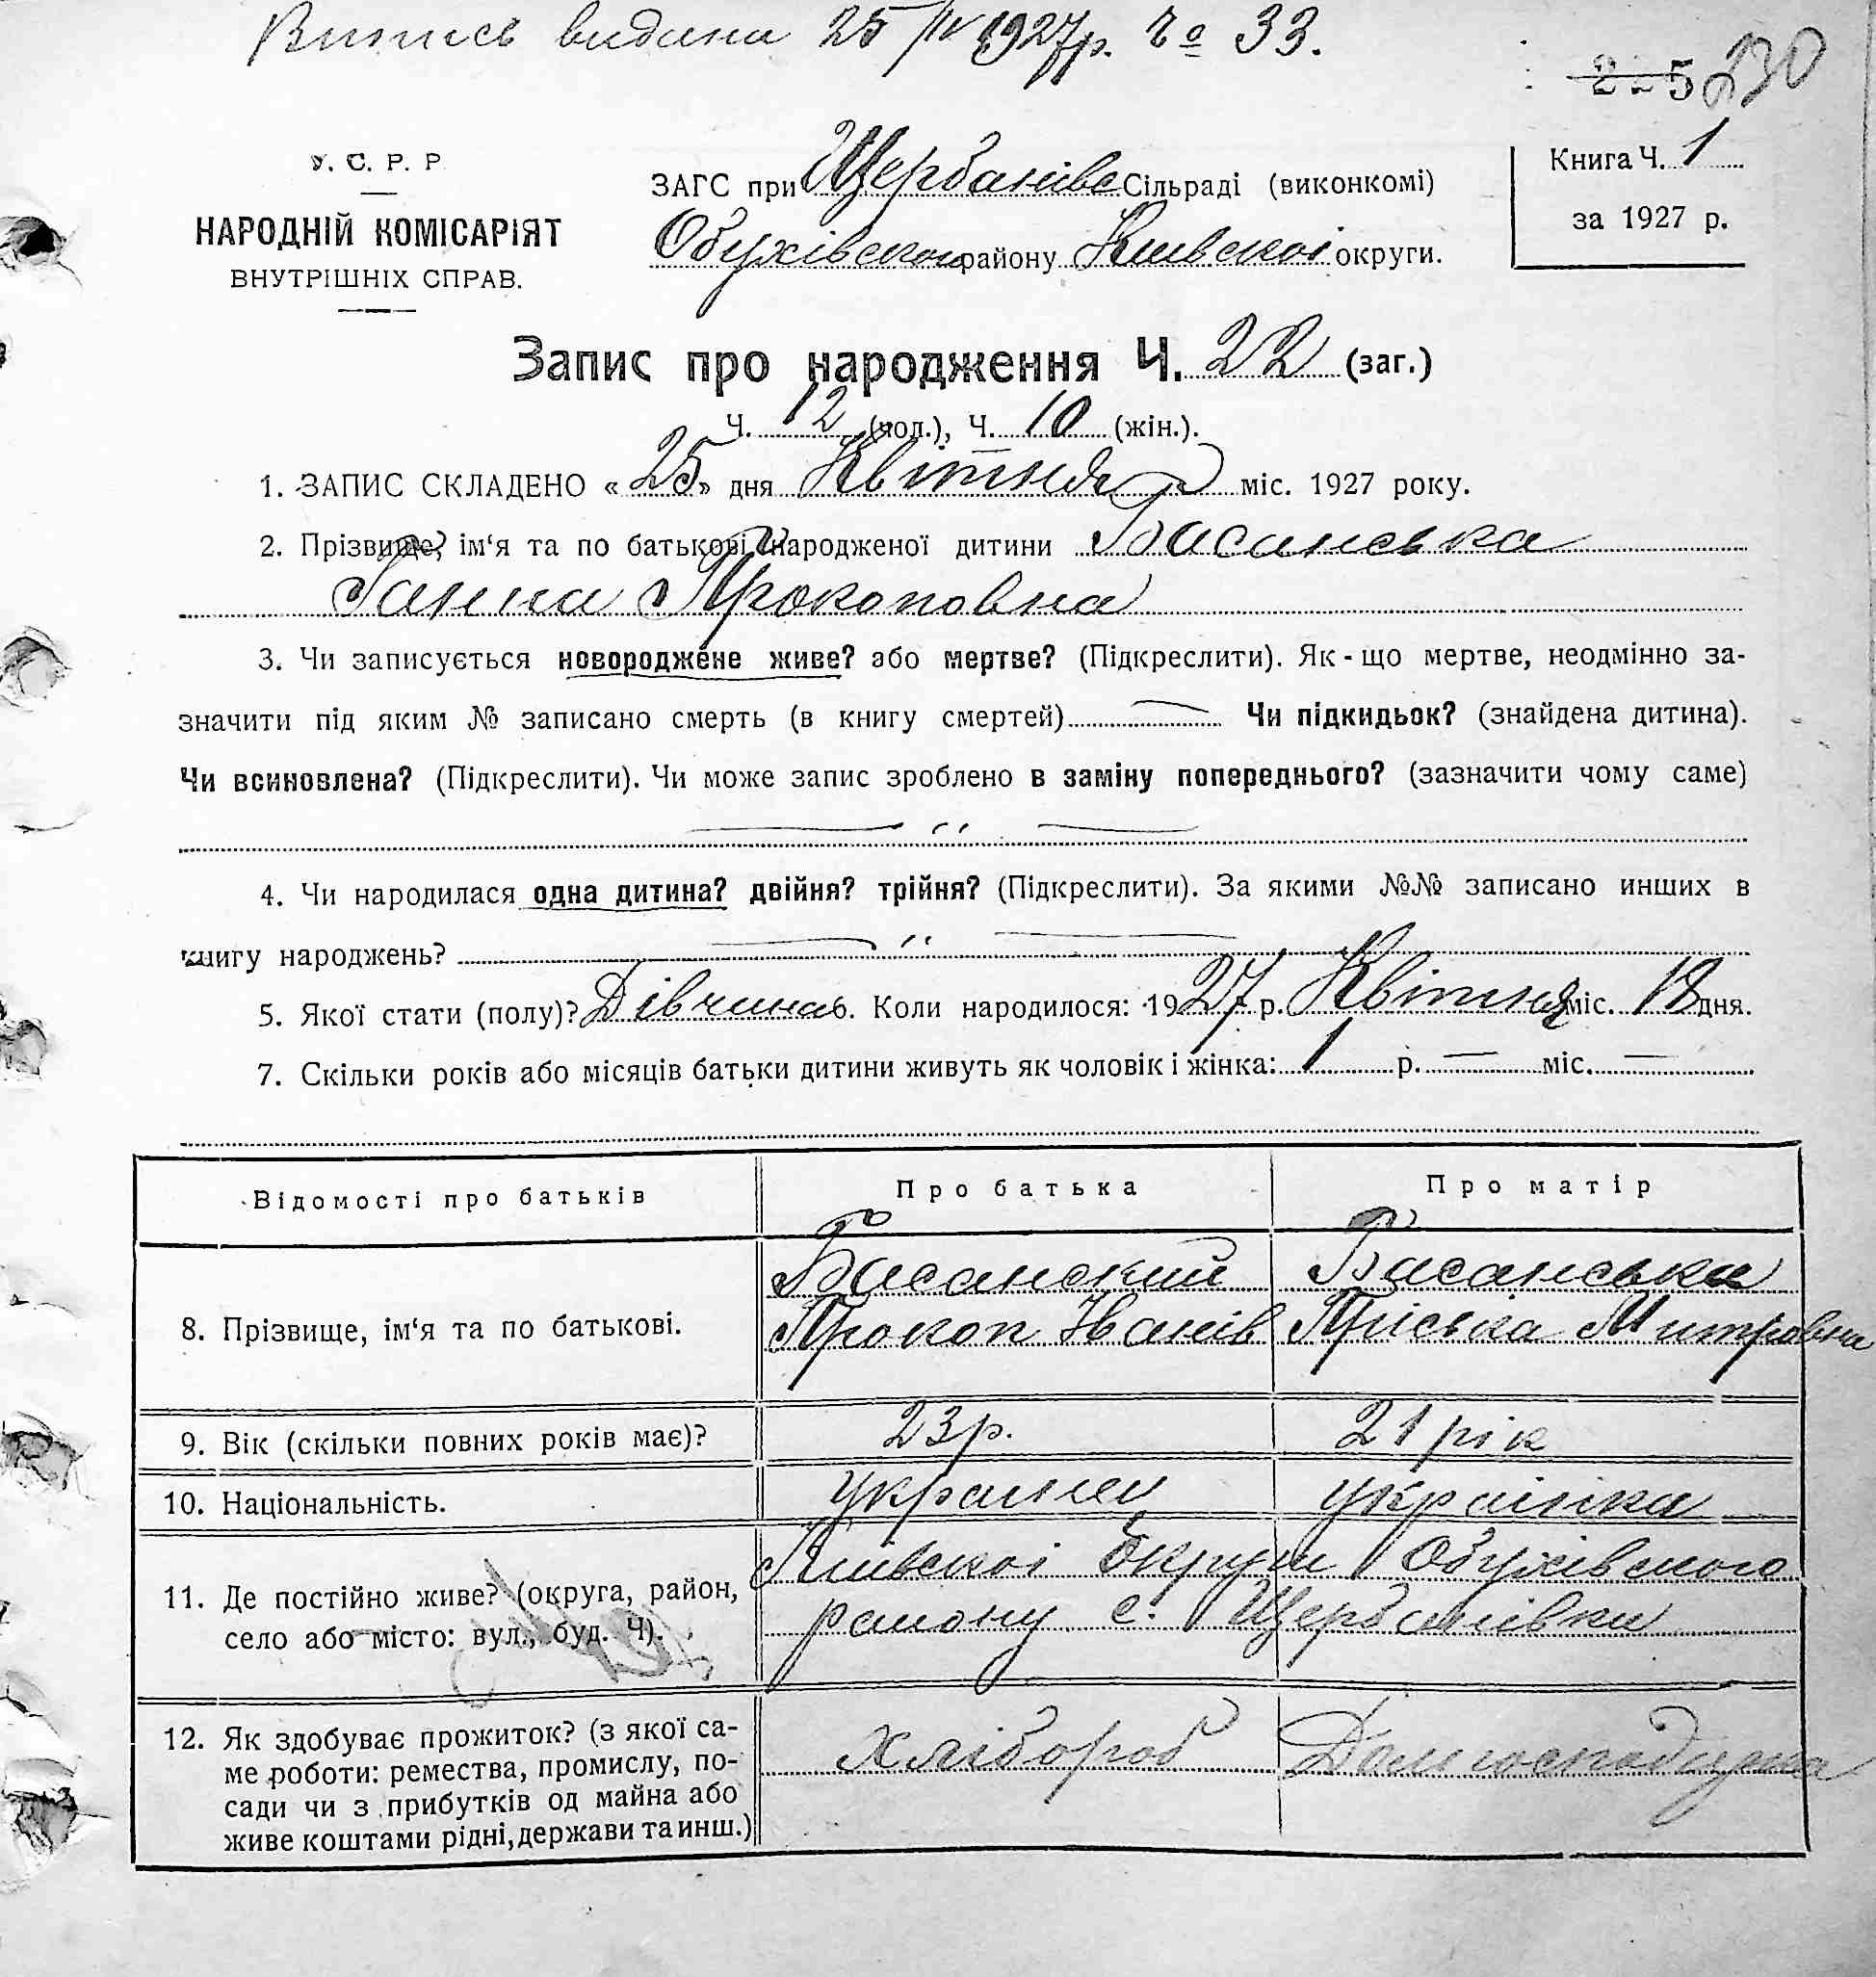 Випись видана 25/IV 1927р. Чо 33.
225 230
У. С. Р. Р.
НАРОДНІЙ КОМІСАРІЯТ
ВНУТРІШНІХ СПРАВ.
ЗАГС при Щербанівс Сільраді (виконкомі)
Обухівскои району Київскоі округи.
Книга Ч. 1
за 1927 р.
Запис про народження Ч. 22 (заг.)
Ч. 12 (чол.), Ч. 10 (жін.).
1. ЗАПИС СКЛАДЕНО «25» дня Квітня міс. 1927 року.
2. Прізвище, ім‘я та по батькові народженої дитини Басанська
Ганна Прокоповна
3. Чи записується новороджене живе? або мертве? (Підкреслити). Як-що мертве, неодмінно за-
значити під яким № записано смерть (в книгу смертей) — Чи підкидьок? (знайдена дитина).
Чи всиновлена? (Підкреслити). Чи може запис зроблено в заміну попереднього? (зазначити чому саме)
4. Чи народилася одна дитина? двійня? трійня? (Підкреслити). За якими №№ записано инших в
книгу народжень?
5. Якої стати (полу)? Дівчина 6. Коли народилося: 1927 р. Квітня міс. 18 дня.
7. Скільки років або місяців батьки дитини живуть як чоловік і жінка: 1 р. — міс. —
Відомості про батьків Про батька Про матір
8. Прізвище, ім‘я та по батькові.
Басанский
Прокоп Іванів
Басанська
Пріська Митровна
9. Вік (скільки повних років має)? 23р. 21 рік
10. Національність. украінец украінка
11. Де постійно живе? (округа, район,
село або місто: вул., буд. Ч).
Київскоі Округи Обухівского
району с. Щербанівки
12. Як здобуває прожиток? (з якої са-
ме роботи: ремества, промислу, по-
сади чи з прибутків од майна або
живе коштами рідні, держави та инш.)
хлібороб
Домгосподарка